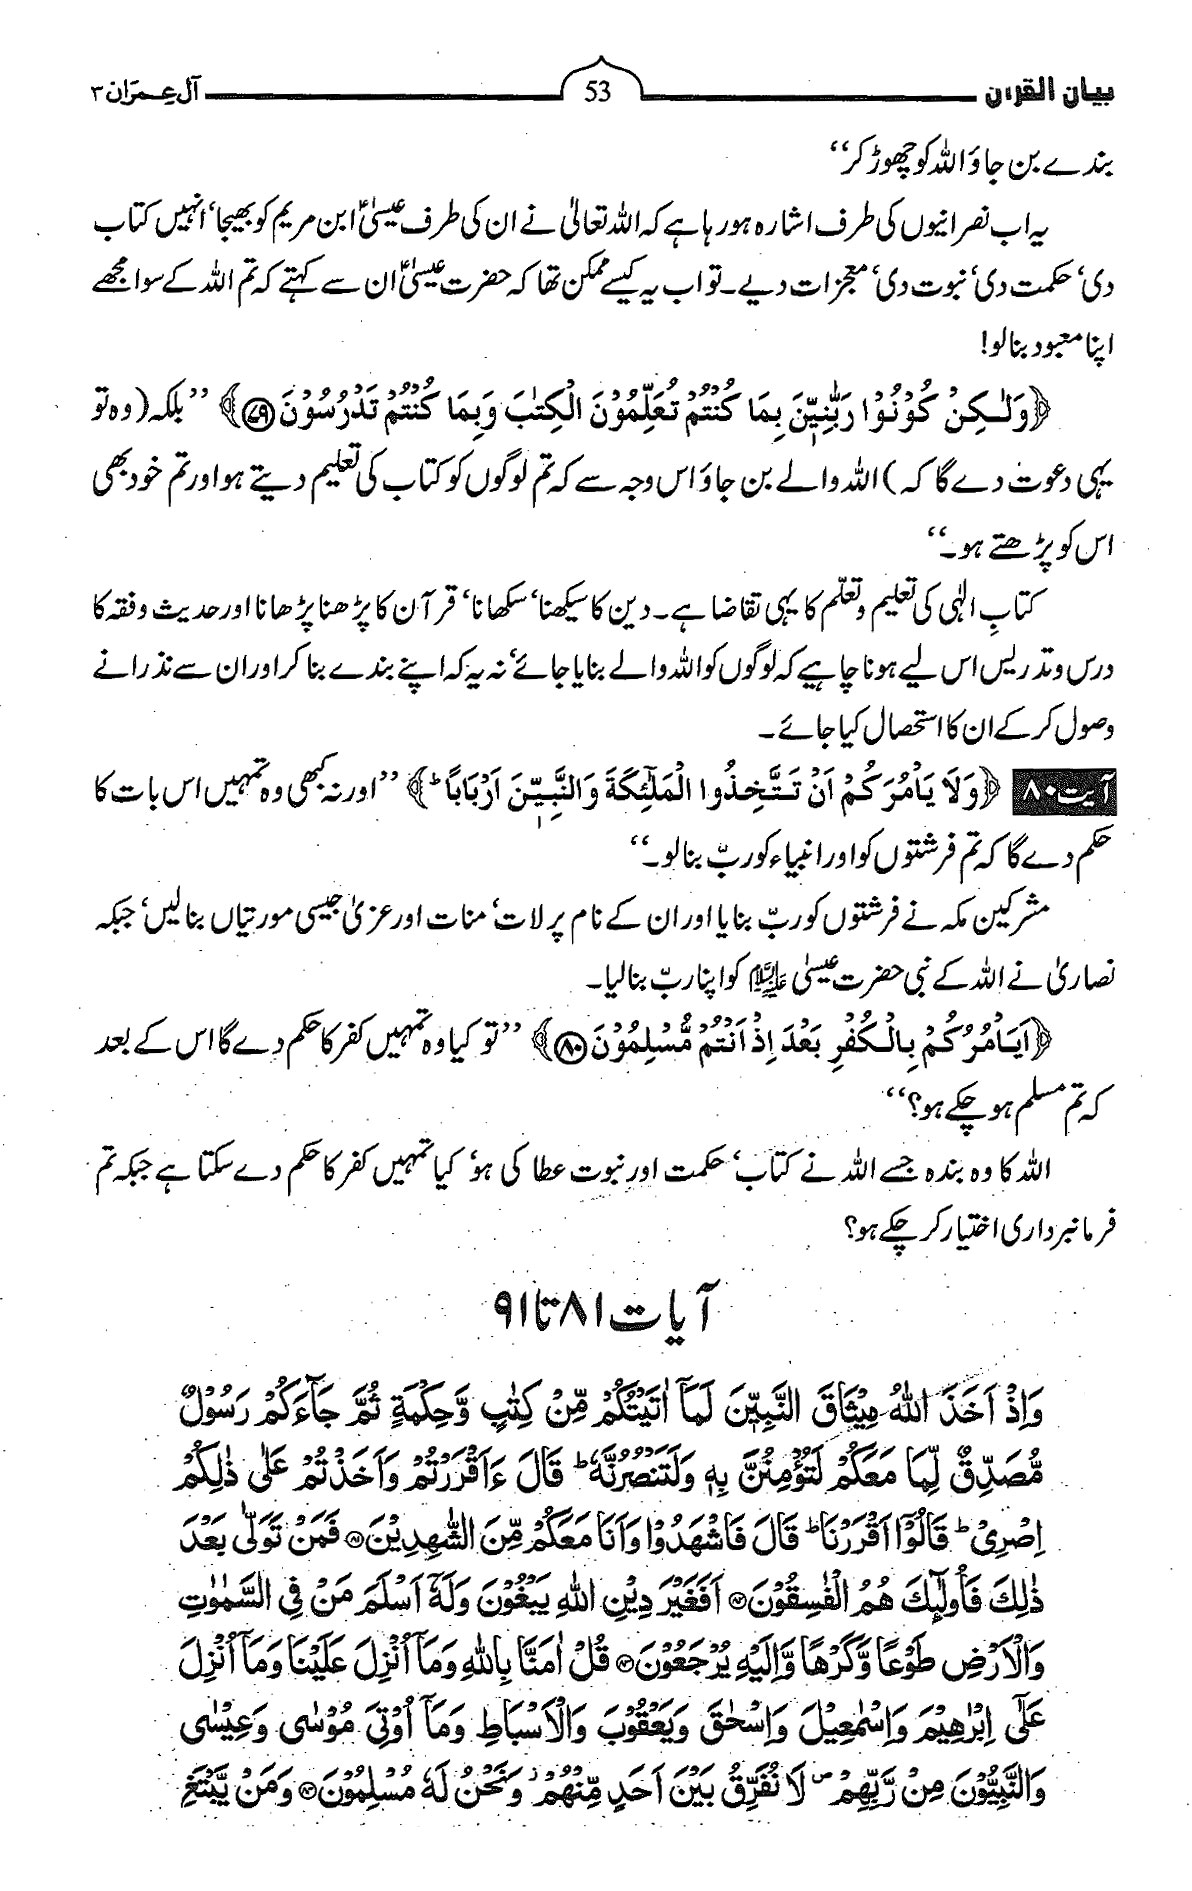 بیان القرآن 53 آل عِمرَان ۳
بندے بن جاؤ اللہ کو چھوڑ کر‘‘
یہ اب نصرانیوں کی طرف اشارہ ہو رہا ہے کہ اللہ تعالیٰ نے ان کی طرف عیسیٰؑ ابن مریم کو بھیجا‘ انہیں کتاب
دی‘ حکمت دی‘ نبوت دی‘ معجزات دیے۔ تو اب یہ کیسے ممکن تھا کہ حضرت عیسیٰؑ ان سے کہتے کہ تم اللہ کے سوا مجھے
اپنا معبود بنا لو!
﴿وَلٰـکِنْ کُوْنُوْا رَبّٰنِیّٖنَ بِمَا کُنْتُمْ تُعَلِّمُوْنَ الْکِتٰبَ وَبِمَا کُنْتُمْ تَدْرُسُوْنَ ﴿۷۹﴾﴾ ’’بلکہ (وہ تو
یہی دعوت دے گا کہ) اللہ والے بن جاؤ اس وجہ سے کہ تم لوگوں کو کتاب کی تعلیم دیتے ہو اور تم خود بھی
اس کو پڑھتے ہو۔‘‘
کتابِ الٰہی کی تعلیم و تعلّم کا یہی تقاضا ہے۔ دین کا سیکھنا‘ سکھانا‘ قرآن کا پڑھنا پڑھانا اور حدیث و فقہ کا
درس و تدریس اس لیے ہونا چاہیے کہ لوگوں کو اللہ والے بنایا جائے‘ نہ یہ کہ اپنے بندے بنا کر اور ان سے نذرانے
وصول کر کے ان کا استحصال کیا جائے۔
آیت ۸۰ ﴿وَلَا یَاْمُرَکُمْ اَنْ تَتَّخِذُوا الْمَلٰٓئِکَۃَ وَالنَّبِیّٖنَ اَرْبَابًا ؕ﴾ ’’اور نہ کبھی وہ تمہیں اس بات کا
حکم دے گا کہ تم فرشتوں کو اور انبیاء کو ربّ بنا لو۔‘‘
مشرکین مکہ نے فرشتوں کو ربّ بنایا اور ان کے نام پر لات‘ منات اور عزیٰ جیسی مورتیاں بنا لیں‘ جبکہ
نصاریٰ نے اللہ کے نبی حضرت عیسیٰ علیہ السلام کو اپنا ربّ بنا لیا۔
﴿اَیَاْمُرُکُمْ بِالْکُفْرِ بَعْدَ اِذْ اَنْتُمْ مُّسْلِمُوْنَ ﴿۸۰﴾﴾ ’’تو کیا وہ تمہیں کفر کا حکم دے گا اس کے بعد
کہ تم مسلم ہو چکے ہو؟‘‘
اللہ کا وہ بندہ جسے اللہ نے کتاب‘ حکمت اور نبوت عطا کی ہو‘ کیا تمہیں کفر کا حکم دے سکتا ہے جبکہ تم
فرمانبرداری اختیار کر چکے ہو؟
آیات ۸۱ تا ۹۱
وَاِذْ اَخَذَ اللّٰہُ مِیْثَاقَ النَّبِیّٖنَ لَمَآ اٰتَیْتُکُمْ مِّنْ کِتٰبٍ وَّحِکْمَۃٍ ثُمَّ جَآءَکُمْ رَسُوْلٌ
مُّصَدِّقٌ لِّمَا مَعَکُمْ لَتُؤْمِنُنَّ بِہٖ وَلَتَنْصُرُنَّہٗ ؕ قَالَ ءَاَقْرَرْتُمْ وَاَخَذْتُمْ عَلٰی ذٰلِکُمْ
اِصْرِیْ ؕ قَالُوْٓا اَقْرَرْنَا ؕ قَالَ فَاشْهَدُوْا وَاَنَا مَعَکُمْ مِّنَ الشّٰهِدِیْنَ ﴿۸۱﴾ فَمَنْ تَوَلّٰی بَعْدَ
ذٰلِکَ فَاُولٰٓئِکَ هُمُ الْفٰسِقُوْنَ ﴿۸۲﴾ اَفَغَیْرَ دِیْنِ اللّٰہِ یَبْغُوْنَ وَلَہٗٓ اَسْلَمَ مَنْ فِی السَّمٰوٰتِ
وَالْاَرْضِ طَوْعًا وَّکَرْهًا وَّاِلَیْہِ یُرْجَعُوْنَ ﴿۸۳﴾ قُلْ اٰمَنَّا بِاللّٰہِ وَمَآ اُنْزِلَ عَلَیْنَا وَمَآ اُنْزِلَ
عَلٰٓی اِبْرٰهِیْمَ وَاِسْمٰعِیْلَ وَاِسْحٰقَ وَیَعْقُوْبَ وَالْاَسْبَاطِ وَمَآ اُوْتِیَ مُوْسٰی وَعِیْسٰی
وَالنَّبِیُّوْنَ مِنْ رَّبِّهِمْ ۪ لَا نُفَرِّقُ بَیْنَ اَحَدٍ مِّنْهُمْ ۫ وَنَحْنُ لَہٗ مُسْلِمُوْنَ ﴿۸۴﴾ وَمَنْ یَّبْتَغِ